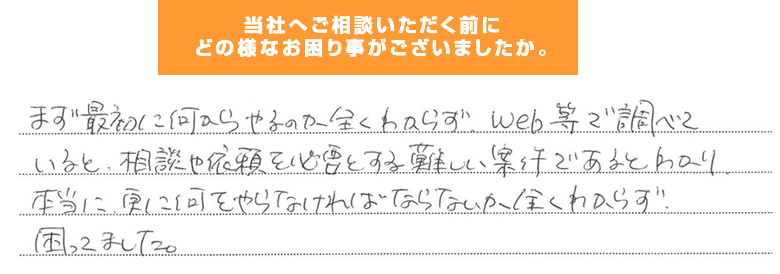 当社へご相談いただく前に
どの様なお困り事がございましたか。
まず最初に何からやるのか全くわからず、Web等で調べて
いると、相談や依頼を必要とする難しい案件であるとわかり、
本当に、更に何をやらなければならないか全くわからず、
困ってました。